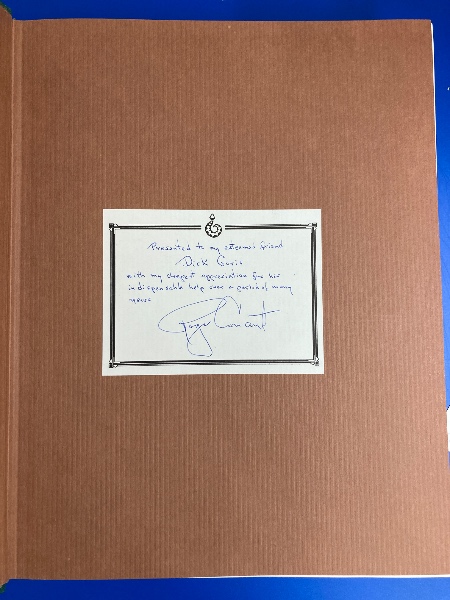 Presented to my eternal friend
Dick
with my deepest appreciation for his
indispensable help over a period of many
years
Roger Conant